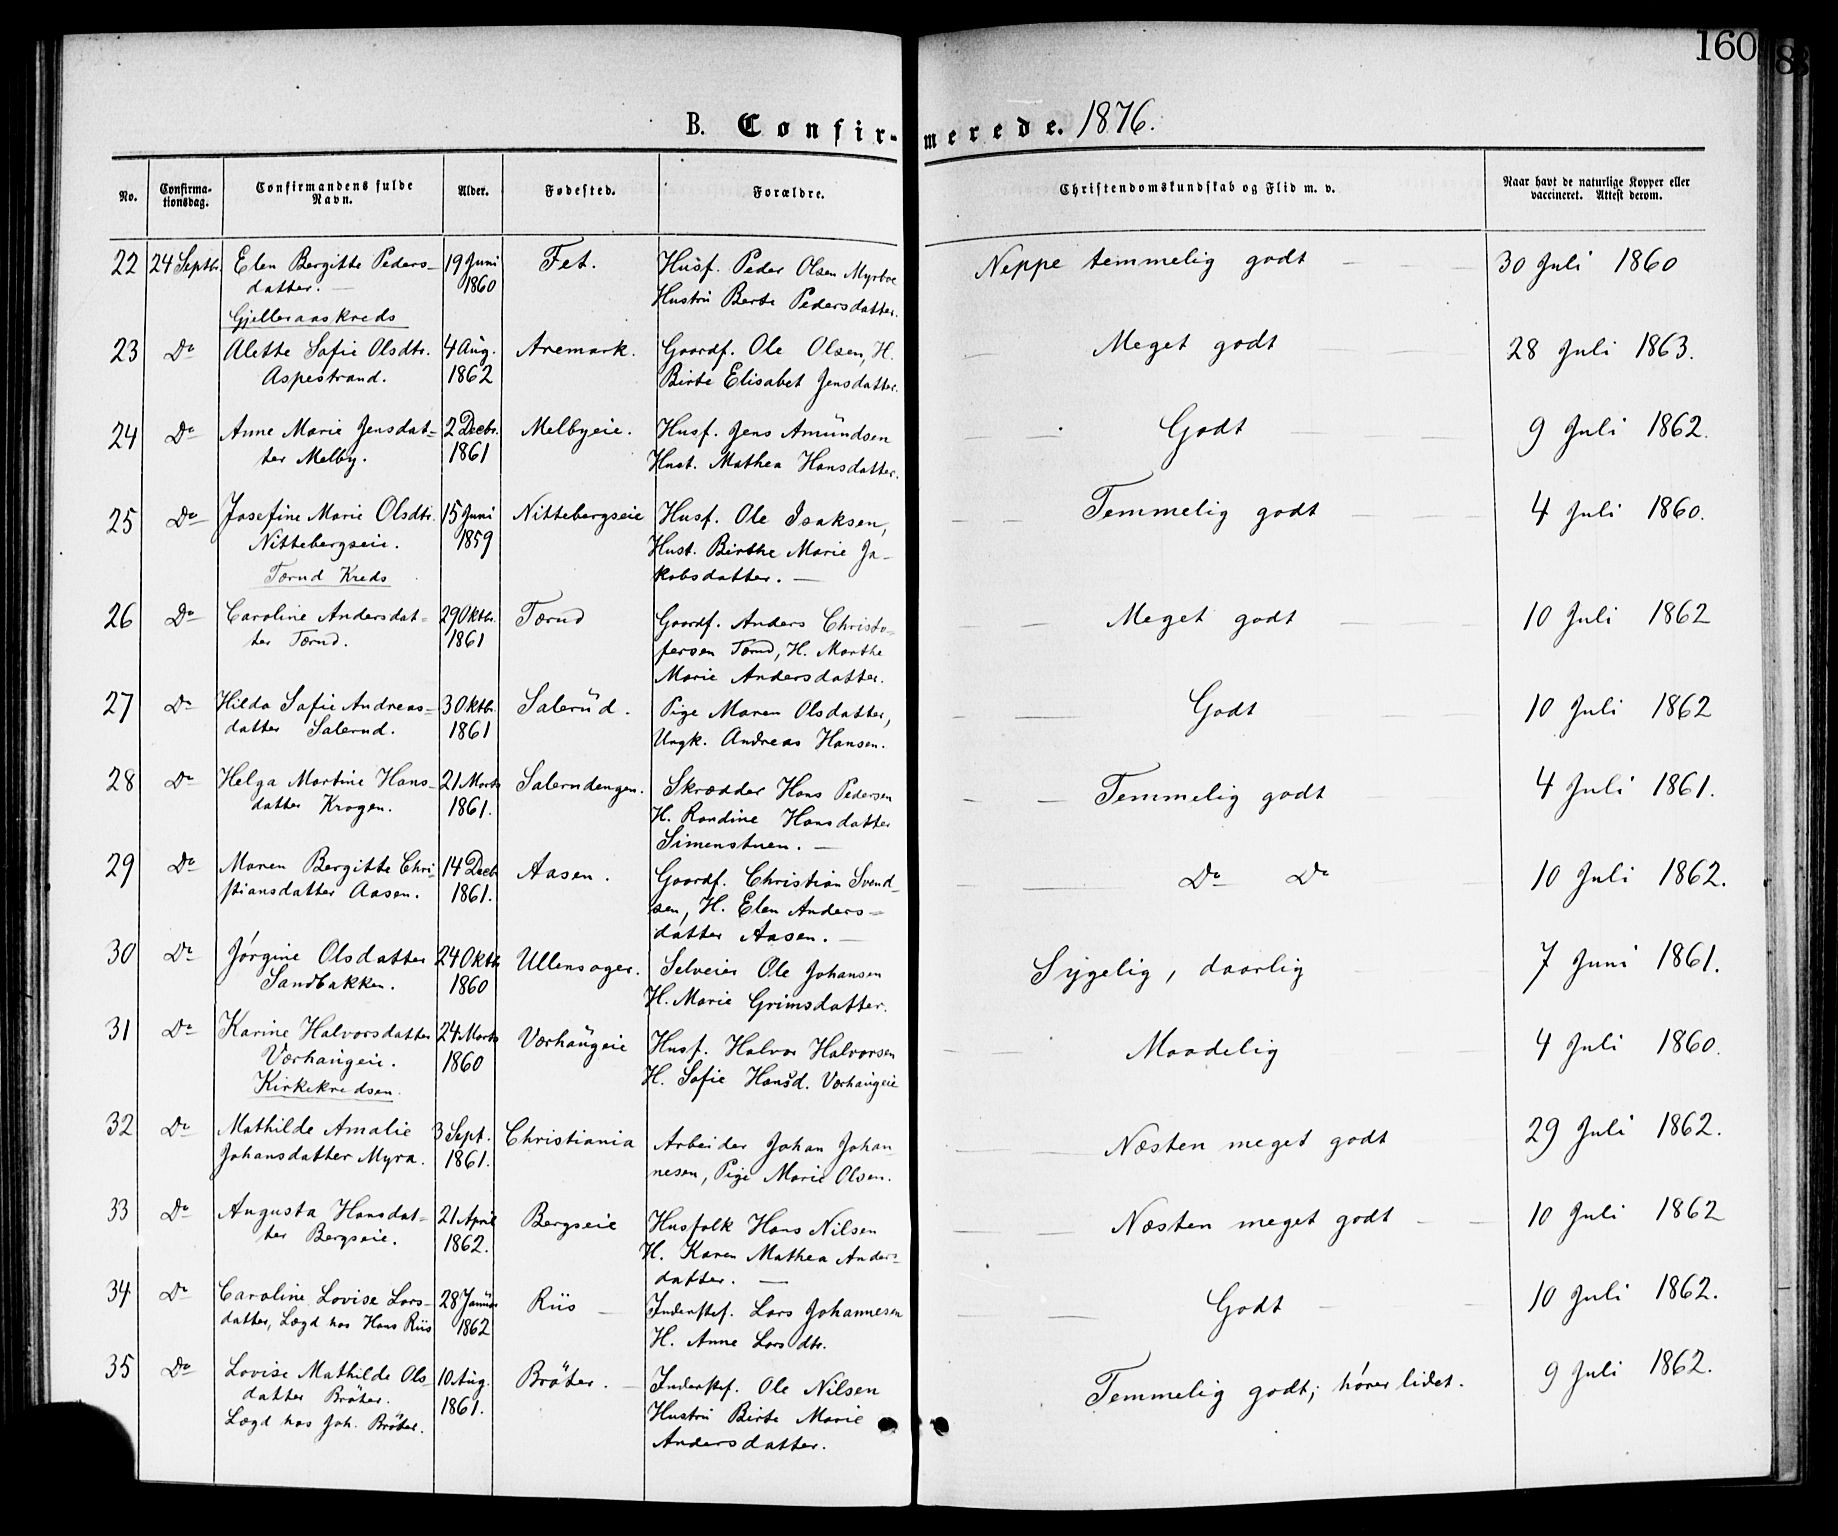 160
8
B. Confir-merede. 1876.
No. Confirma-tionsdag. Confirmandens fulde Navn. Alder. Fødested. Forældre. Christendomskundskab og Flid m. v. Naar havt de naturlige Kopper eller vaccineret. Attest derom.
22 24 Septbr. Elen Bergitte Peders- 19 Juni Fet. Husf. Peder Olsen Myrbræ Neppe temmelig godt 30 Juli 1860
datter. 1860 Hustru Berte Pedersdatter.
Gjelleraaskreds
23 Do Alette Sofie Olsdtr. 4 Aug. Aremark. Gaardf. Ole Olsen, H. Meget godt 28 Juli 1863.
Aspestrand. 1862 Birte Elisabet Jensdatter.
24 Do Anne Marie Jensdat= 2 Decbr. Melbyeie. Husf. Jens Amundsen Godt 9 Juli 1862.
ter Melby. 1861 Hust. Mathea Hansdatter.
25 Do Josefine Marie Olsdtr. 15 Juni Nittebergseie Husf. Ole Isaksen, Temmelig godt 4 Juli 1860.
Nittebergseie. 1859 Hust. Birthe Marie Ja-
Tærud Kreds kobsdatter.
26 Do Caroline Andersdat= 29 Oktbr. Tærud Gaardf. Anders Christo- Meget godt 10 Juli 1862
ter Tærud. 1861 fersen Tærud, H. Marthe
Marie Andersdatter.
27 Do Hilda Sofie Andreas= 3 Oktbr. Salerud. Pige Maren Olsdatter, Godt 10 Juli 1862
datter Salerud. 1861 Ungk. Andreas Hansen.
28 Do Helga Martine Hans- 21 Marts Salerudengen. Skrædder Hans Pedersen Temmelig godt 4 Juli 1861.
datter Krogen. 1861. H. Randine Hansdatter
Simenstuen.
29 Do Maren Bergitte Chri- 14 Decb. Aasen. Gaardf. Christian Svend- Do Do 10 Juli 1862.
stiansdatter Aasen. 1861. sen, H. Elen Anders=
datter Aasen.
30 Do Jørgine Olsdatter 24 Oktb. Ullensager. Selveier Ole Johansen Sygelig, daarlig 7 Juni 1861.
Sandbakken. 1860 H. Marie Grimsdatter.
31 Do Karine Halvorsdatter 24 Marts Værhaugeie Husf. Halvor Halvorsen Maadelig 4 Juli 1860.
Værhaugeie. 1860 H. Sofie Hansd. Værhaugeie
Kirkekredsen.
32 Do Mathilde Amalie 3 Sept. Christiania Arbeider Johan Johan Næsten meget godt 29 Juli 1862.
Johansdatter Myra. 1861. nesen, Pige Marie Olsen.
33 Do Augusta Hansdat= 21 April Bergseie Husfolk Hans Nilsen Næsten meget godt 10 Juli 1862
ter Bergseie. 1862. H. Karen Mathea Anders=
datter.
34 Do Caroline Lovise Lars- 28 Januar Riis Inderstef. Lars Johannesen Godt 10 Juli 1862.
datter, Lægd hos Hans Riis 1862 H. Anne Larsdtr.
35 Do Lovise Mathilde Ols- 10 Aug. Bräter. Inderstef. Ole Nilsen Temmelig godt; hører lidet. 9 Juli 1862.
datter Bräter. 1861. Hustru Birte Marie
Lægd hos Joh. Bräter. Andersdatter.